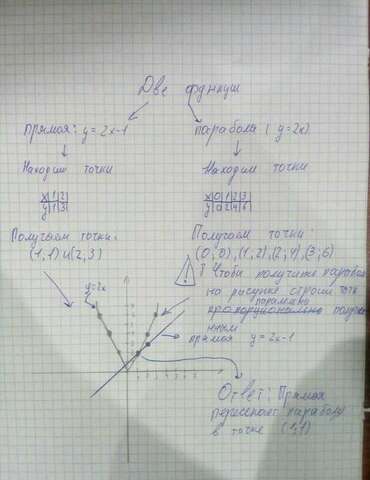 Две функции
прямая: y = 2x-1
парабола ( y=2x)
Находим точки
Находим точки
x|1|2|
y|1|3|
x|0|1|2|3
y|0|2|4|6|
Получаем точки:
(1,1) и (2,3)
Получаем точки:
(0;0),(1,2),(2;4),(3;6)
! Чтобы получение парабол
на рисунке строим точк
паралельно
получе
нным
y=2x
прямая y=2x-1
Ответ: Прямая
пересекает параболу
в точке (1;1)